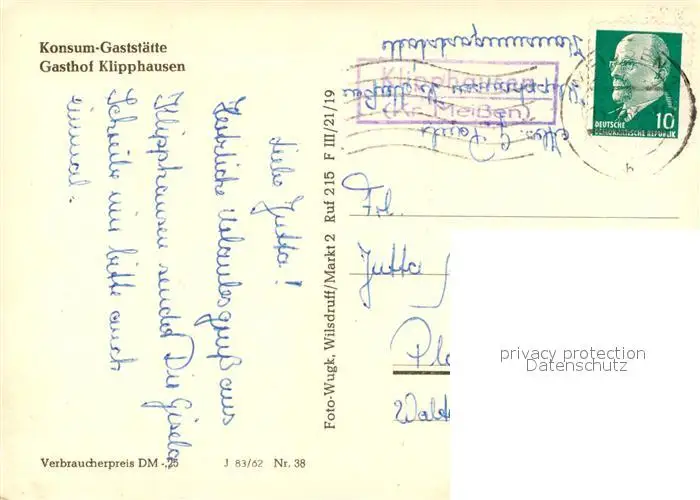 Konsum-Gaststätte
Gasthof Klipphausen
Liebe Jutta!
Herzliche Urlaubsgrüß aus
Klipphausen sendet Dir Gisela
Schreibe mir bitte auch
einmal.
Verbraucherpreis DM -,25 J 83/62 Nr. 38
Foto-Wugk, Wilsdruff/Markt 2 Ruf 215 F III/21/19
Klipphausen
(Kr. Meißen)
DEUTSCHE
DEMOKRATISCHE REPUBLIK
10
Frl.
Jutta
privacy protection
Datenschutz